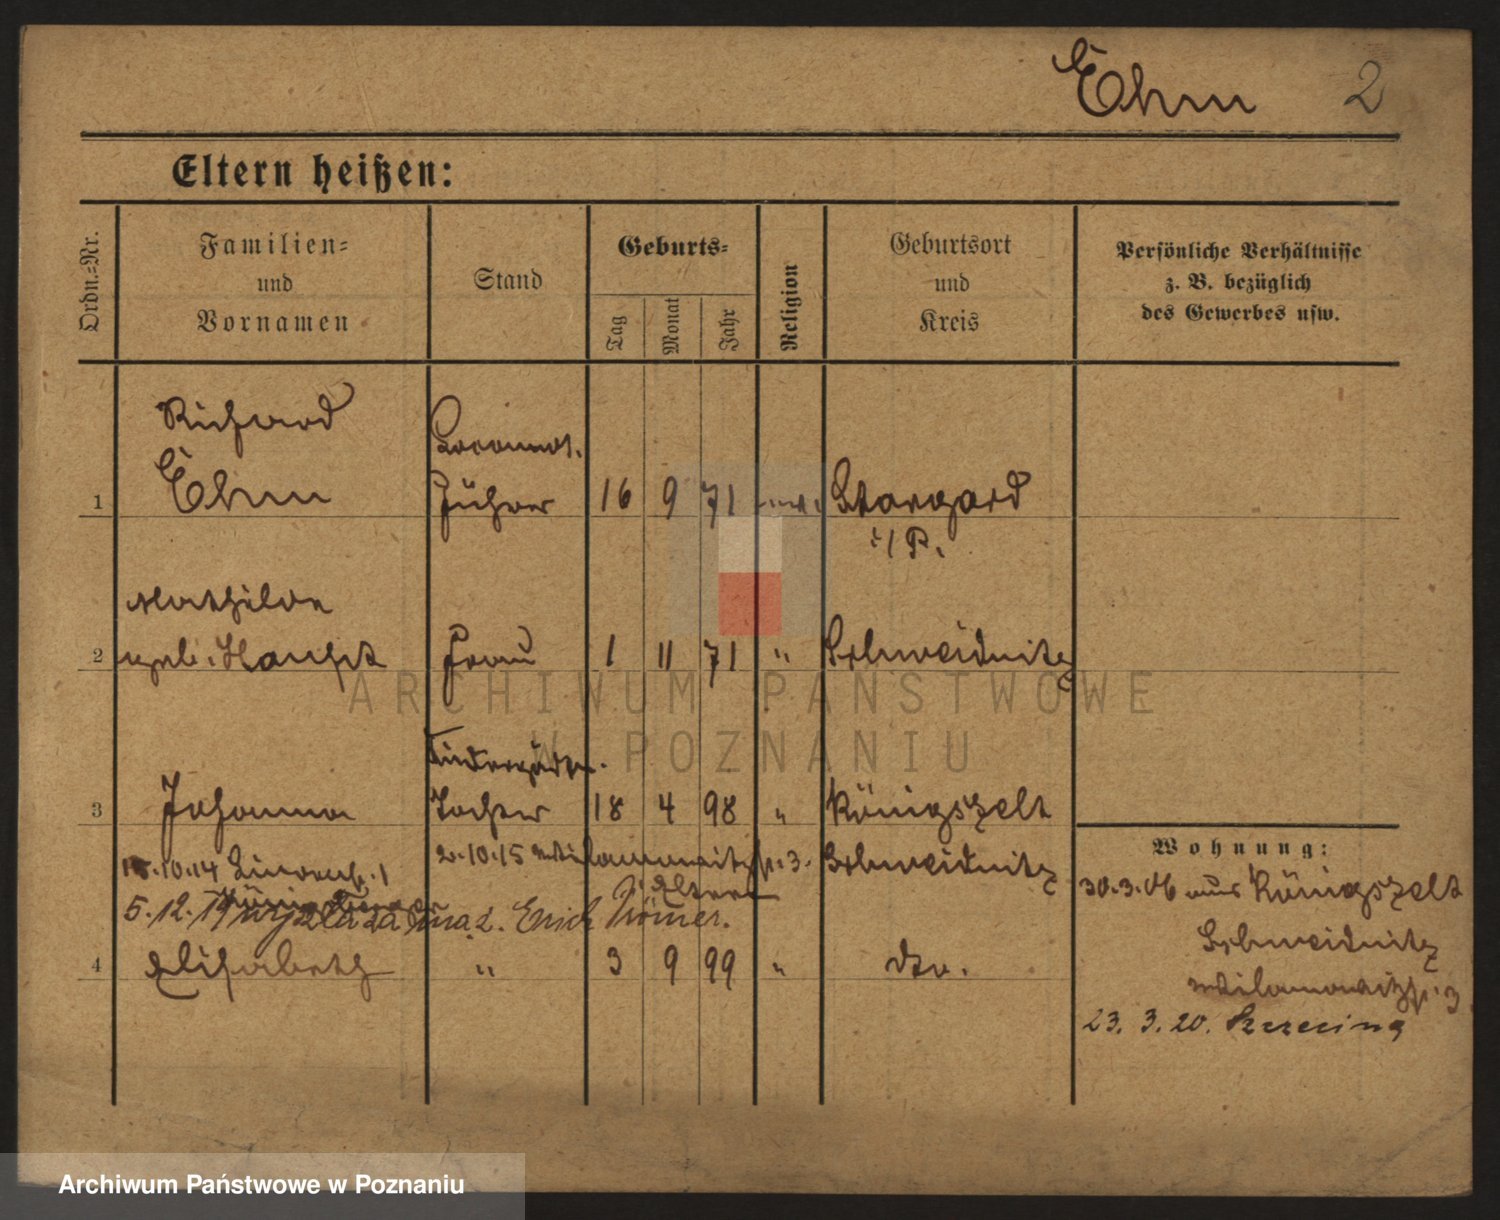 Ehm 2
Eltern heißen:
Ordn.=Nr.
Familien=
und
Vornamen
Stand
Geburts=
Tag
Monat
Jahr
Religion
Geburtsort
und
Kreis
Persönliche Verhältnisse
z. B. bezüglich
des Gewerbes usw.
Richard
Ehm
Locomot.
1 Führer 16 9 71 Stargard
i/P.
Mathilde
2 geb. Haupt Frau 1 11 71 " Schweidnitz
3 Johanna Tochter 18 4 98 " Königszelt
10.14
2.10.15 3. Schweidnitz
Eltern
5.12.19 wyszła za mąż. Erich Römer.
4 Elisabeth " 3 9 99 " dto.
Wohnung:
30.3.06 aus Königszelt
Schweidnitz
3
23. 3. 20.
ARCHIWUM PAŃSTWOWE
W POZNANIU
Archiwum Państwowe w Poznaniu